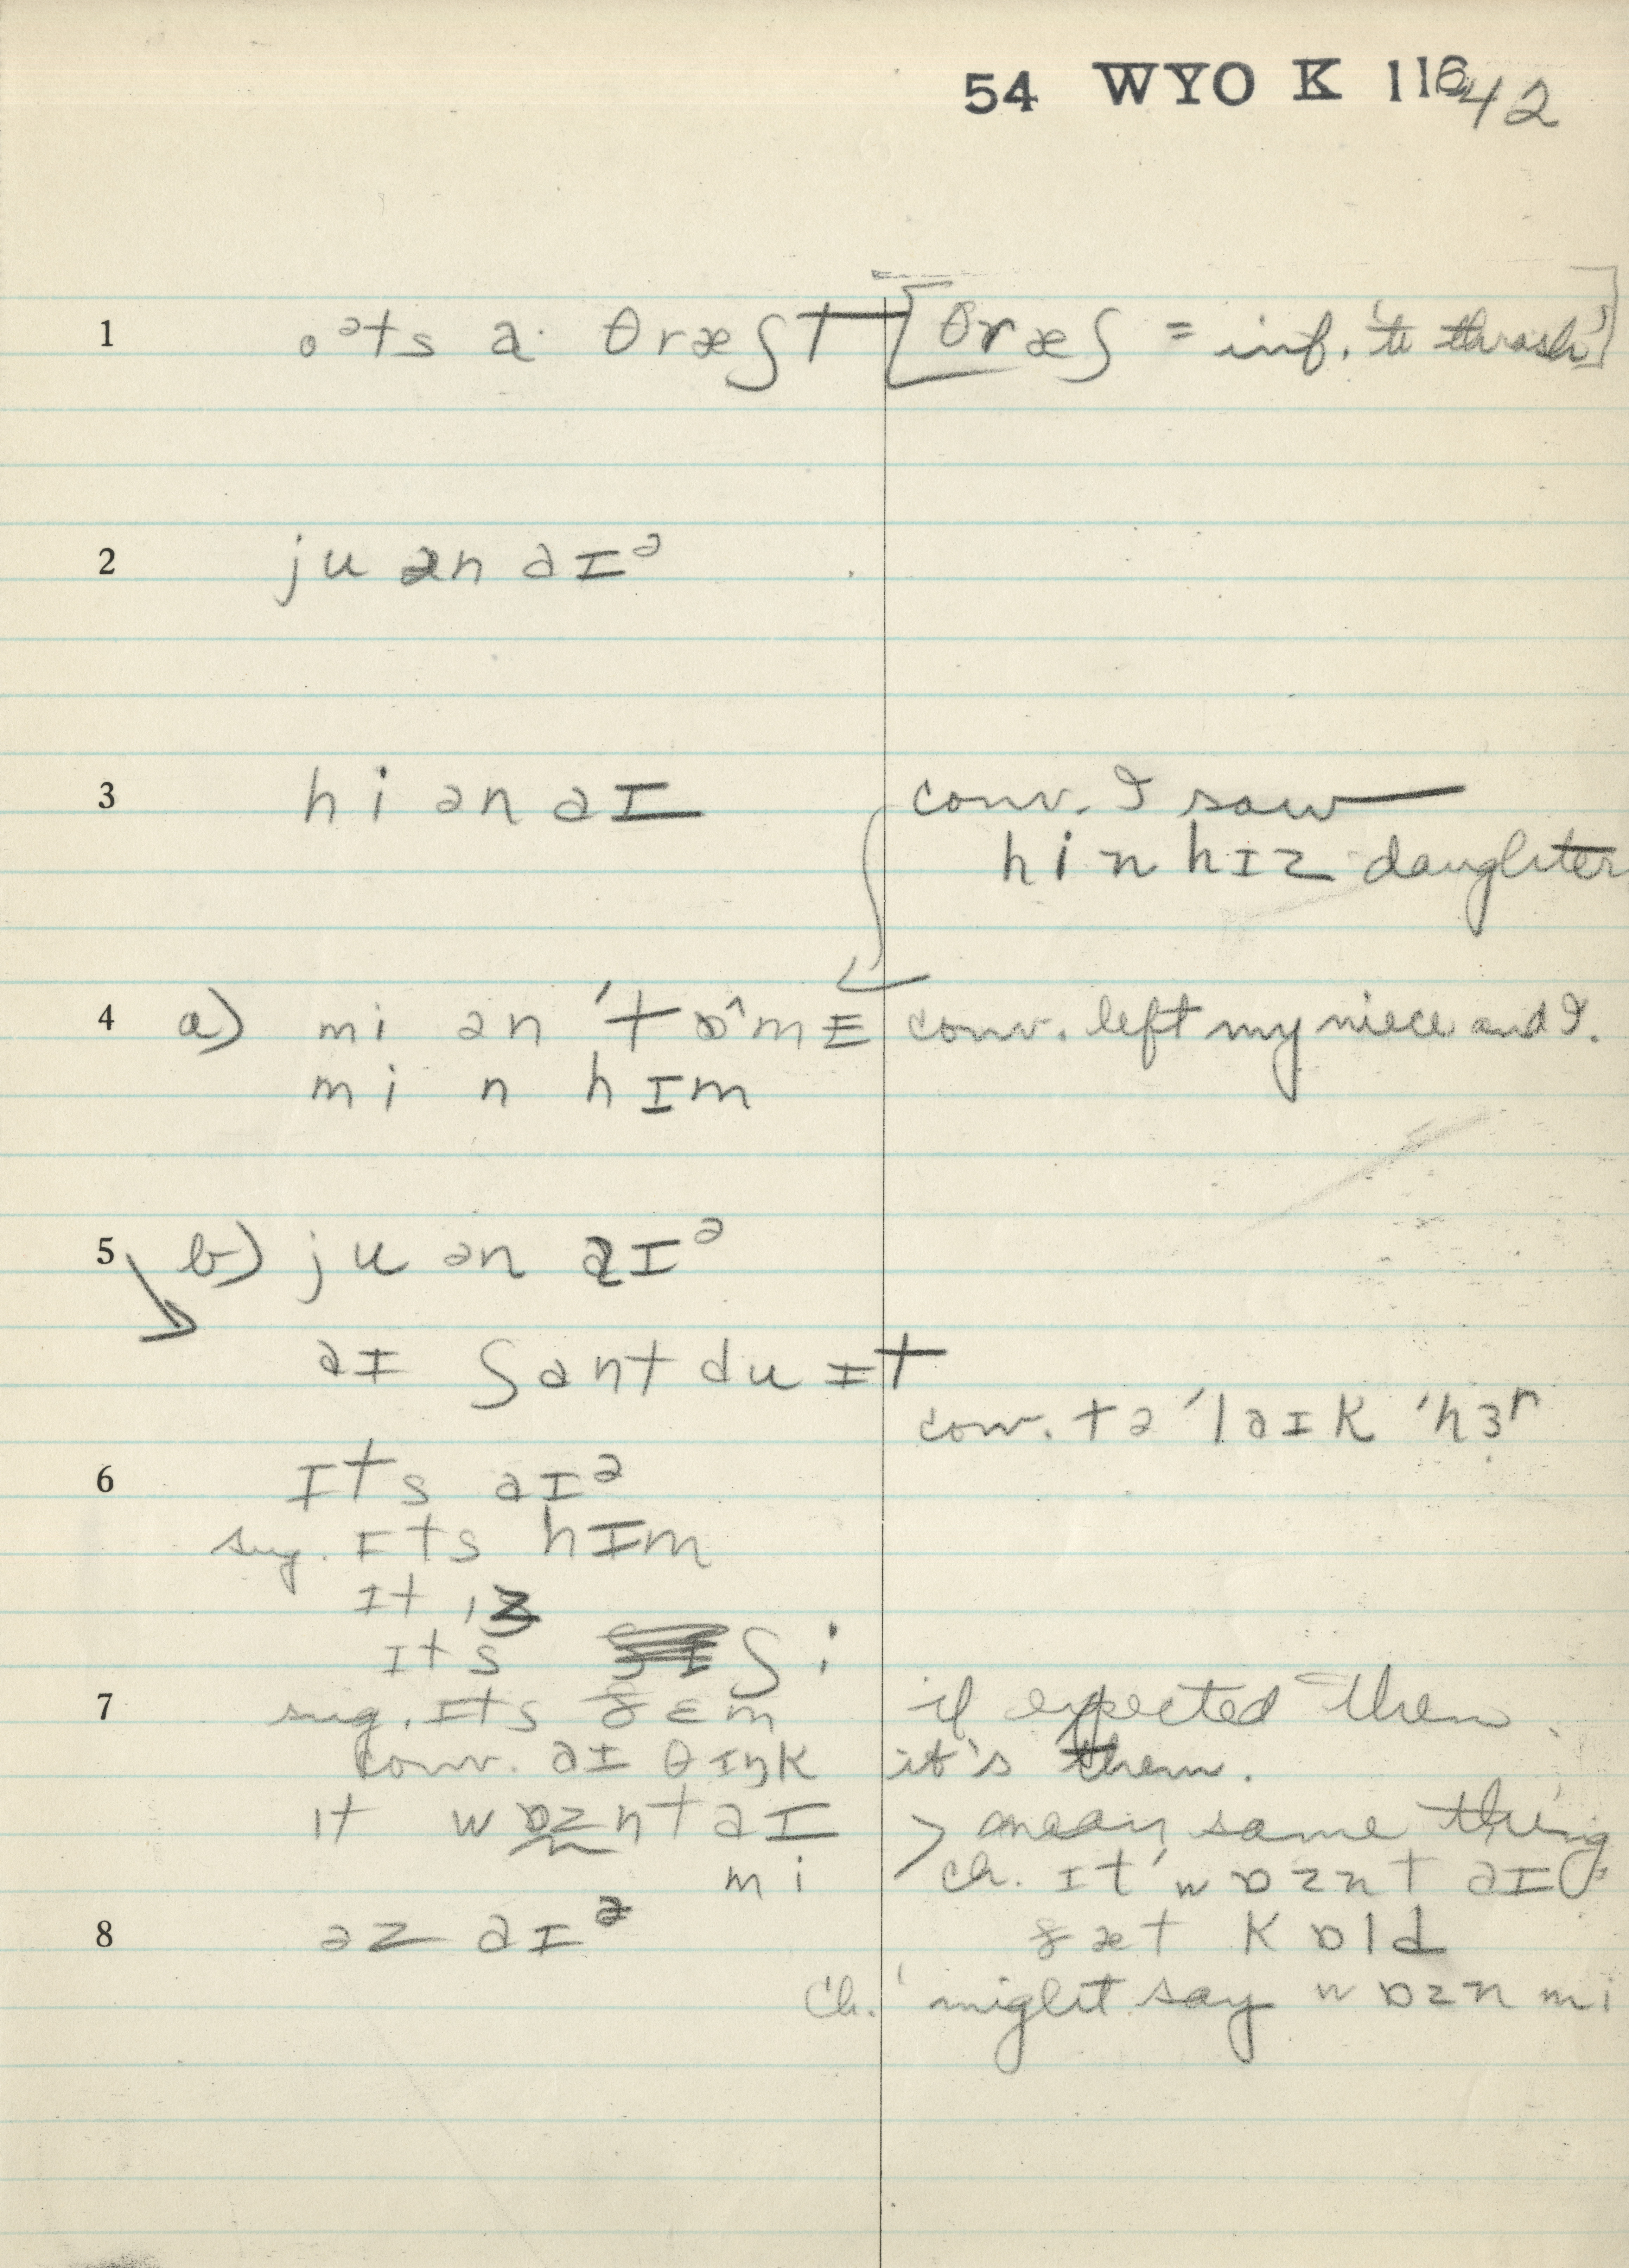 54 WYO K 116 42
1 oᵊts a· θræʃt [θræʃ = inf. 'to thrash']
2 ju ən aɪᵊ
3 hi ən aɪ conv. I saw
hi n hɪz daughter
4 a) mi ən 'tɒ^mɪ conv. left my niece and I.
mi n hɪm
5 b) ju ən aɪᵊ
aɪ ʃant du ɪt
conv. tə 'laɪk 'hɜr
6 ɪts aɪᵊ
sug. ɪts hɪm
ɪt ɪz
ɪts ʃi
7 sug. ɪts ðɛm if expected them.
conv. aɪ θɪŋk it's them.
ɪt wɒznt aɪ > mean same thing
mi ch. ɪt 'wɒznt aɪ
8 əz aɪᵊ ðæt kɒld
Ch. might say wɒzn mi